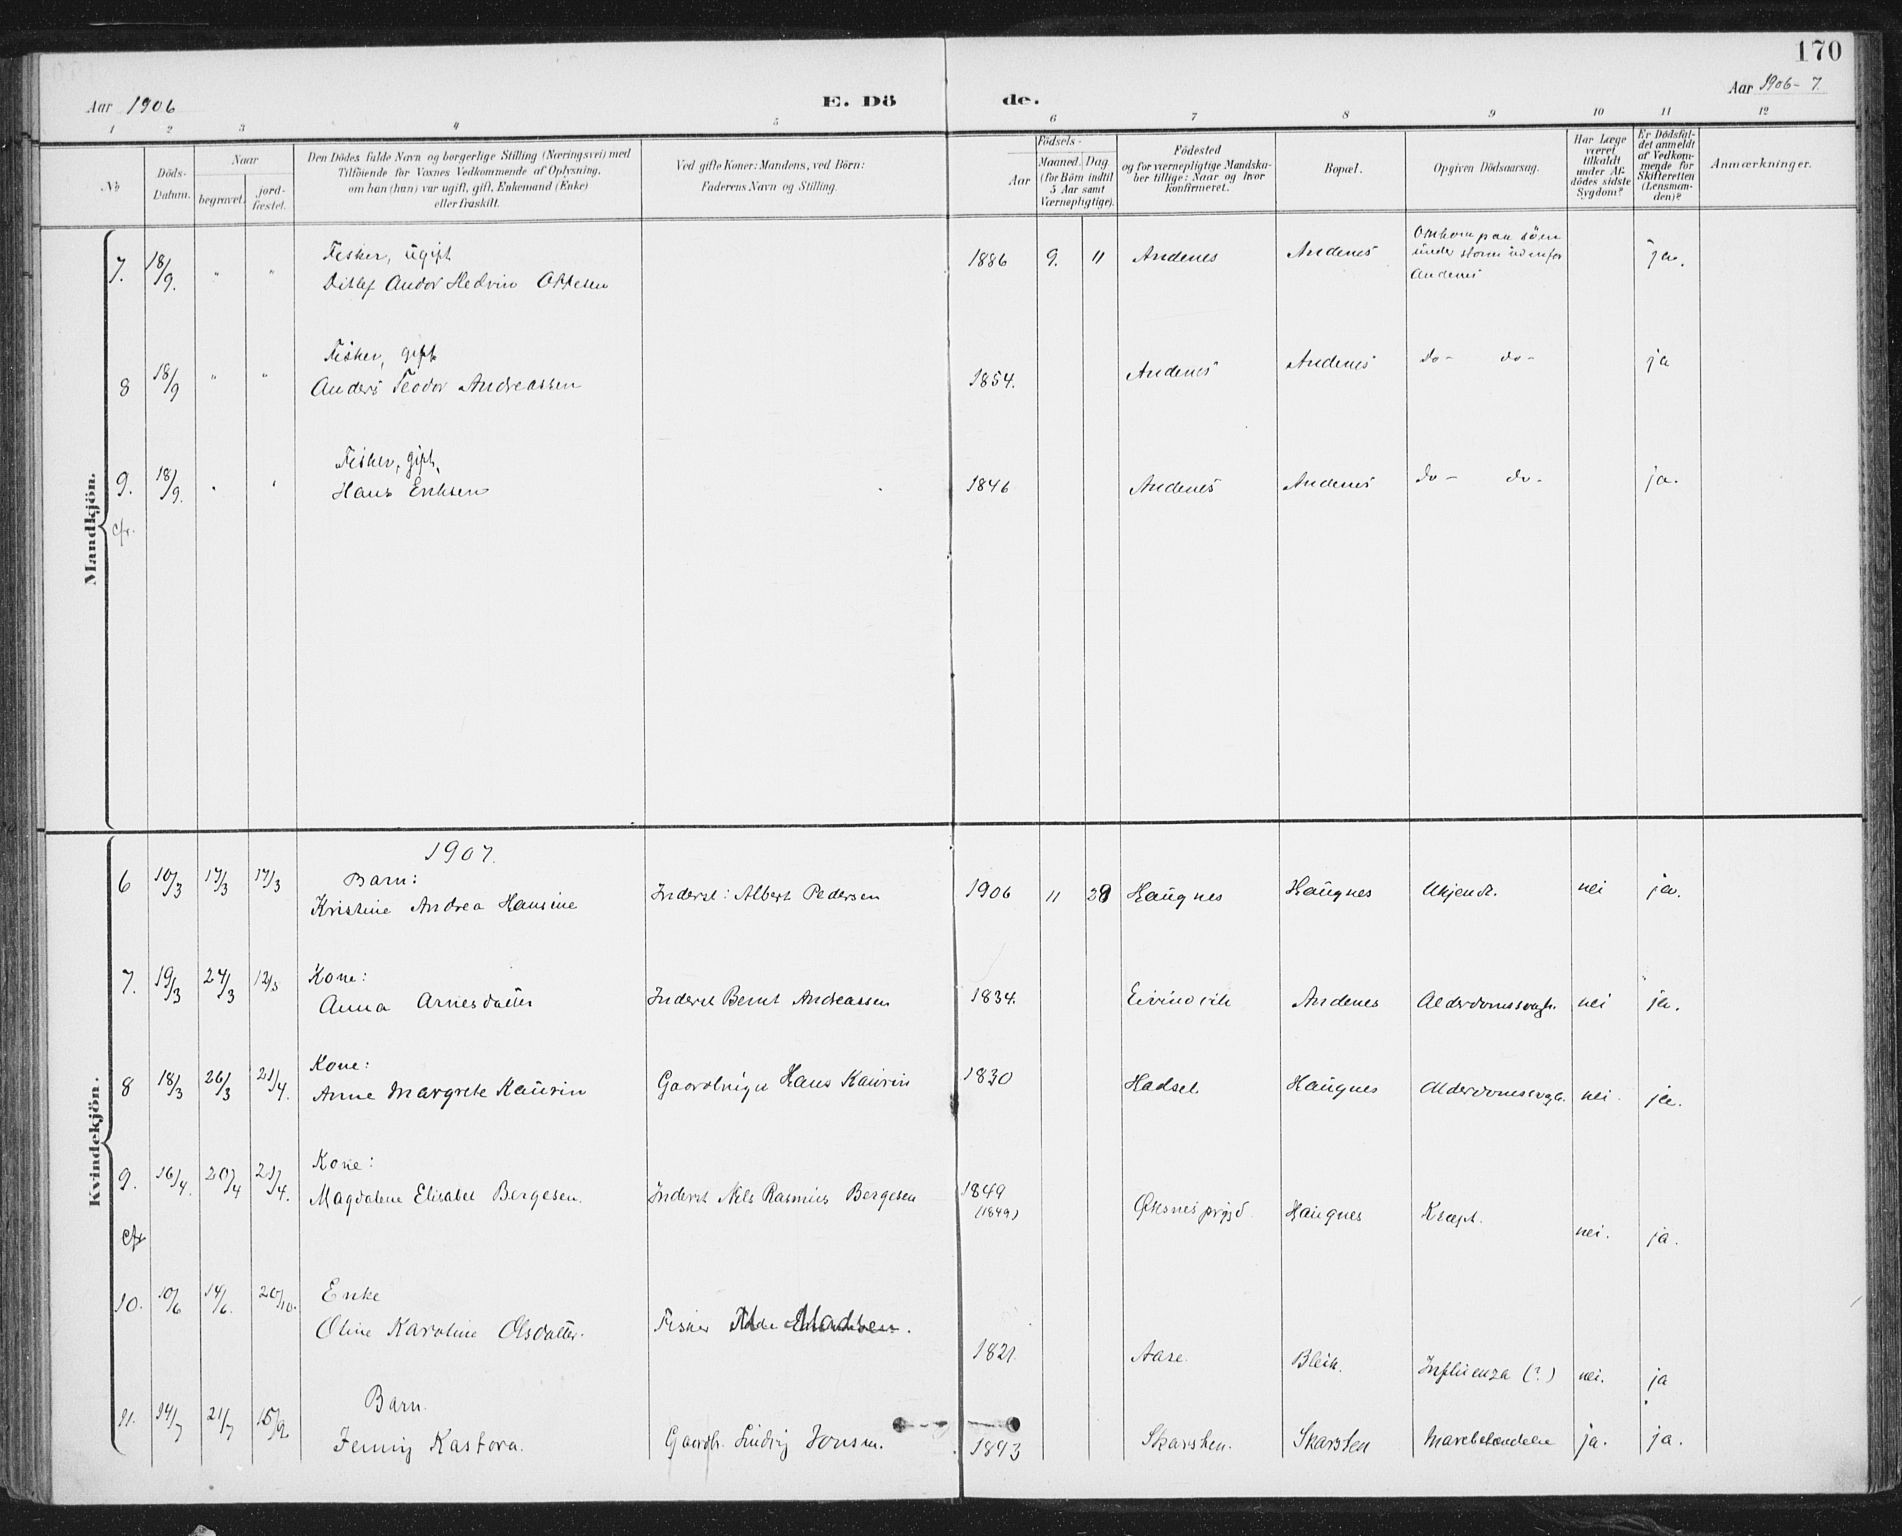 170
Aar 1906
E. Dö
de.
Aar 1906-7.
1 2 3 4 5 6 7 8 9 10 11 12
No
Döds-Datum.
Naar
begravet.
jord-fæstet.
Den Dödes fulde Navn og borgerlige Stilling (Næringsvei) med
Tilföiende for Voxnes Vedkommende af Oplysning,
om han (hun) var ugift, gift, Enkemand (Enke)
eller fraskilt.
Ved gifte Koner: Mandens, ved Börn:
Faderens Navn og Stilling.
Födsels-
Aar
Maaned. Dag
(for Börn indtil
5 Aar samt
Værnepligtige).
Födested
og for værnepligtige Mandska-
ber tillige: Naar og hvor
konfirmeret.
Bopæl.
Opgiven Dödsaarsag.
Har Læge
været
tilkaldt
under Af-
dödes sidste
Sygdom?
Er Dödsfal-
det anmeldt
af Vedkom-
mende for
Skifteretten
(Lensman-
den)?
Anmærkninger.
Mandkjön.
7. 18/9. " " Fisker, ugift
Ditlef Andor Hedvin Ottesen 1886 9. 11 Andenes Andenes Omkom paa söen
under storm udenfor
Andenes ja.
8 18/9 " " Fisker, gift
Anders Teodor Andreassen 1854. Andenes Andenes do- do- ja
9. 18/9. " " Fisker, gift.
Hans Eriksen 1846 Andenes Andenes do- do- ja.
cfr.
Kvindekjön.
1907.
6 10/3 17/3 17/3 Barn:
Kristine Andrea Hansine Inderst: Albert Pedersen 1906 11 Haugnes Haugnes Ukjendt. nei ja.
7. 19/3 27/3 Kone:
Anna Arnesdatter Inderst Bernt Andreassen 1834. Andenes Alderdomssvagh. nei ja.
8 18/3 26/3 21/4. Kone:
Anne Margrete Kaurin Hans Kaurin 1830 Hadsel Haugnes Alderdomssvagh. nei. ja.
9. 16/4. 20/4 21/4. Kone:
Magdalene Elisabet Bergesen. Inderst Nils Rasmus Bergesen 1849
(1849) Øksnes prgjd. Haugnes Kræft. nei. ja.
cfr
10. 10/6 14/6. 20/10. Enke
Oline Karoline Olsdatter. Fisker Madsen. 1821. Aase. Bleik. Influenza (?) nei. ja
11. 14/7 21/7 15/9. Barn.
Jenny Kastora. Gaardbr. Jonsen. 1893 Skarsten. Skarsten ja. ja.